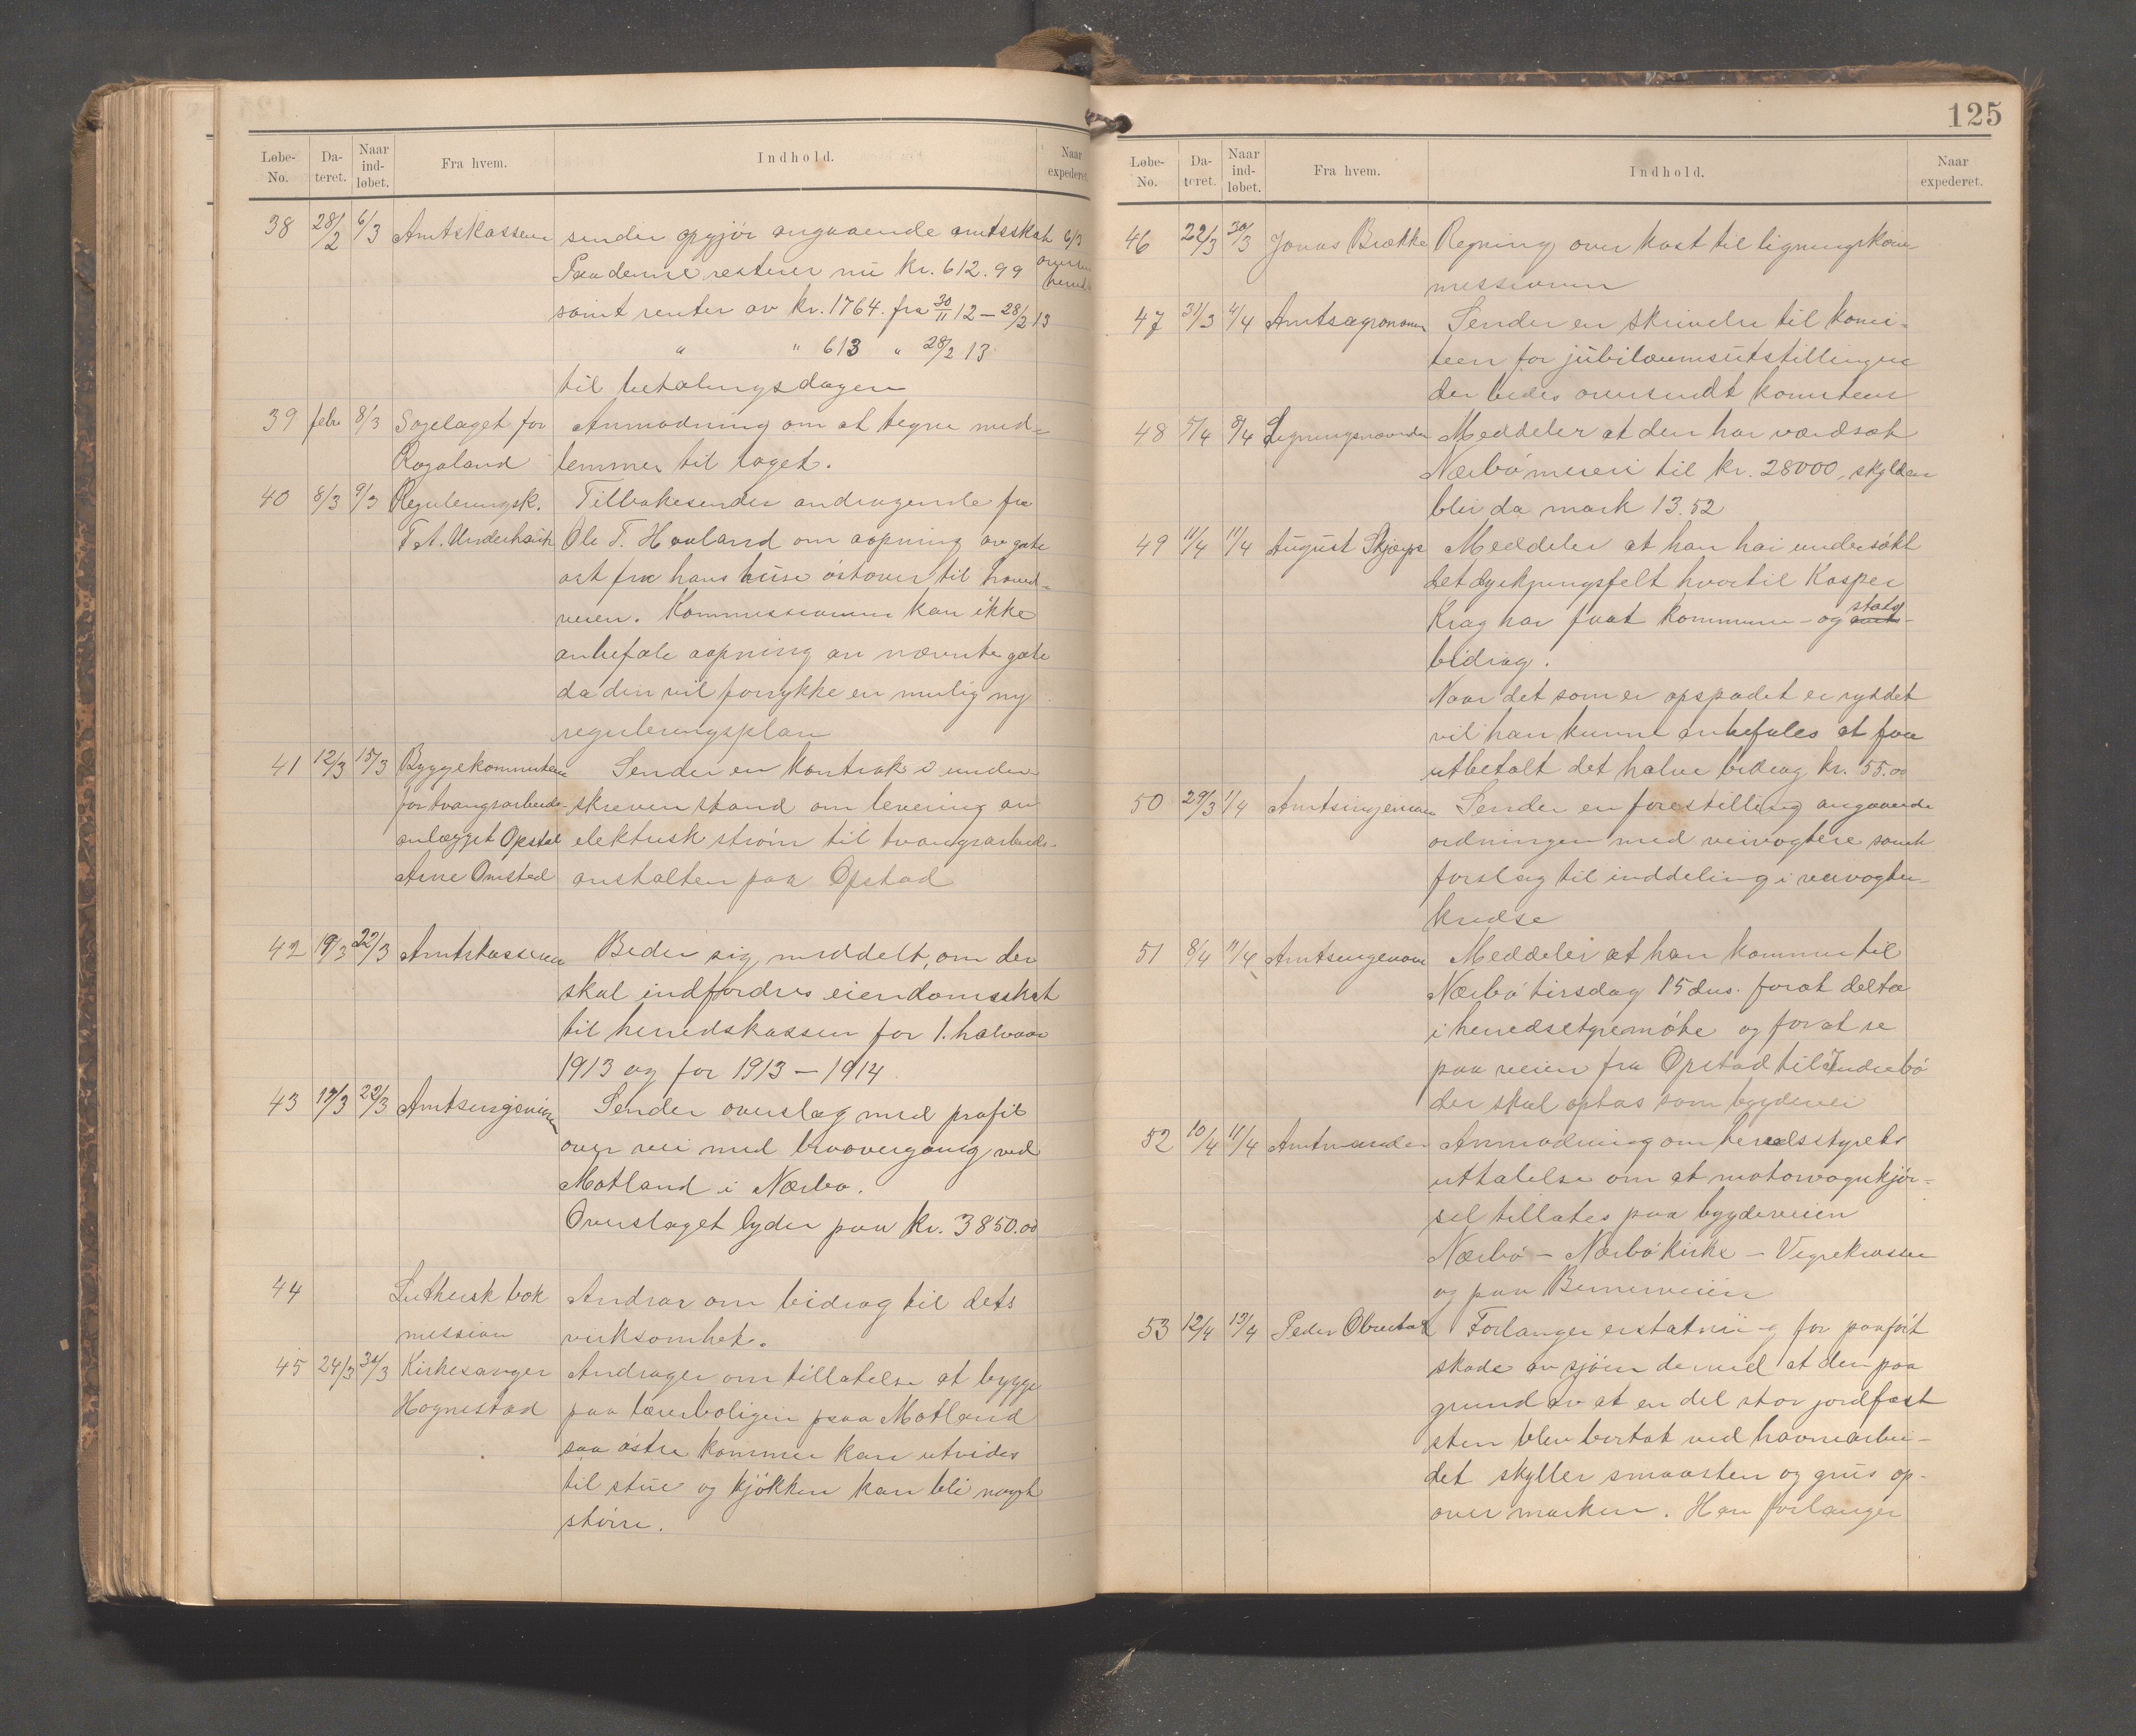 Løbe-No. Dateret. Naar indløbet. Fra hvem. Indhold. Naar expederet.
38 28/2 6/3 Amtskassen sender opgjör angaaende amtsskat 6/3
Paa denne resterer nu kr. 612.99
samt renter av kr. 1764. fra 30/11 12 – 28/2 13
" " 613 " 28/2 13
til betalingsdagen
39 febr 8/3 Sogelaget for Anmodning om at tegne med-
Rogaland lemmer til laget.
40 8/3 9/3 Reguleringsk. Tilbakesender andragende fra
T. A. Underhaug Ole T. Hauland om aapning av gate
ost fra hans huse östover til hoved-
veien. Kommissionen kan ikke
anbefale aapning av nævnte gate
da den vil forrykke en mulig ny
reguleringsplan
41 12/3 15/3 Byggekomiteen Sender en kontrakt i under-
for tvangsarbeids- skreven stand om levering av
anlægget Opstad elektrisk ström til tvangsarbeids-
Arne Omsted anstalten paa Opstad
42 19/3 22/3 Amtskassereren Beder sig meddelt, om der
skal indfordres eiendomsskat
til herredskassen for 1. halvaar
1913 og for 1913 – 1914
43 17/3 22/3 Amtsingeniören Sender overslag med profil
over vei med broovergang ved
Motland i Nærbo.
Overslaget lyder paa kr. 3850.00
44 Luthersk bok Andrar om bidrag til dets
mission virksomhet.
45 24/3 30/3 Kirkesanger Andrager om tillatelse at bygge
Hognestad paa lærerboligen paa Motland
saa östre kammer kan utvides
til stue og kjökken kan bli noget
större.
125
Løbe-No. Dateret. Naar indløbet. Fra hvem. Indhold. Naar expederet.
46 22/3 30/3 Jonas Brætke Regning over kost til ligningskom-
missionen
47 31/3 4/4 Amtsagronomen Sender en skrivelse til komi-
teen for jubilæumsutstillingen
der bedes oversendt komiteen
48 5/4 8/4 Ligningsnævnden Meddeler at den har værdsat
Nærbö meieri til kr. 28000, skylden
blir da mark 13.52
49 11/4 11/4 August Meddeler at han har undersökt
det dyrkningsfelt hvortil Kasper
Krag har faat kommune- og stats-
bidrag.
Naar det som er opspadet er ryddet
vil han kunne anbefales at faa
utbetalt det halve bidrag kr. 55.00
50 29/3 1/4 Amtsingeniören Sender en forestilling angaaende
ordningen med veivogtere samt
forslag til inddeling i veivogter-
kredse
51 8/4 11/4 Amtsingeniören Meddeler at han kommer til
Nærbö tirsdag 15 dns. forat delta
i herredsstyremöte og for at se
paa veien fra Opstad til
der skal optas som bygdevei
52 10/4 11/4 Amtmanden Anmodning om herredsstyrets
uttalelse om at motorvognkjör-
sel tillates paa bygdeveien
Nærbö – Nærbö kirke – Vigrekrossen
og paa
53 12/4 13/4 Peder Obrestad Forlanger erstatning for paafört
skade av sjöen derved at den paa
grund av at en del stor jordfast
sten blev bortat ved havnearbei-
det skyller smaasten og grus op-
over marken. Han forlanger